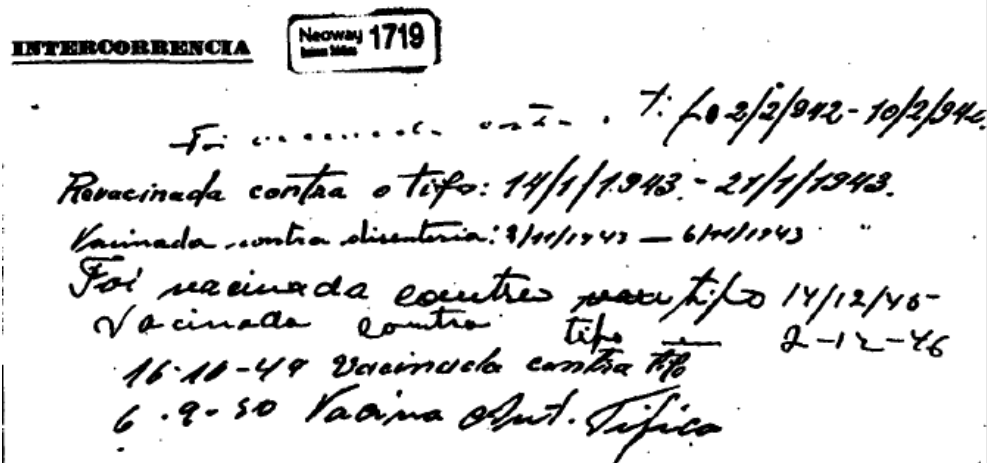 INTERCORRENCIA
Neoway 1719
Foi vacinada contra o tifo 2/2/942 - 10/2/942
Revacinada contra o tifo: 14/1/1943 - 21/1/1943.
Vacinada contra disenteria: 3/11/1943 — 6/11/1943
Foi vacinada contra tifo 14/12/45-
Vacinada contra tifo — 2-12-46
16-10-49 Vacinada contra tifo
6.9.50 Vacina Ant. Tifica